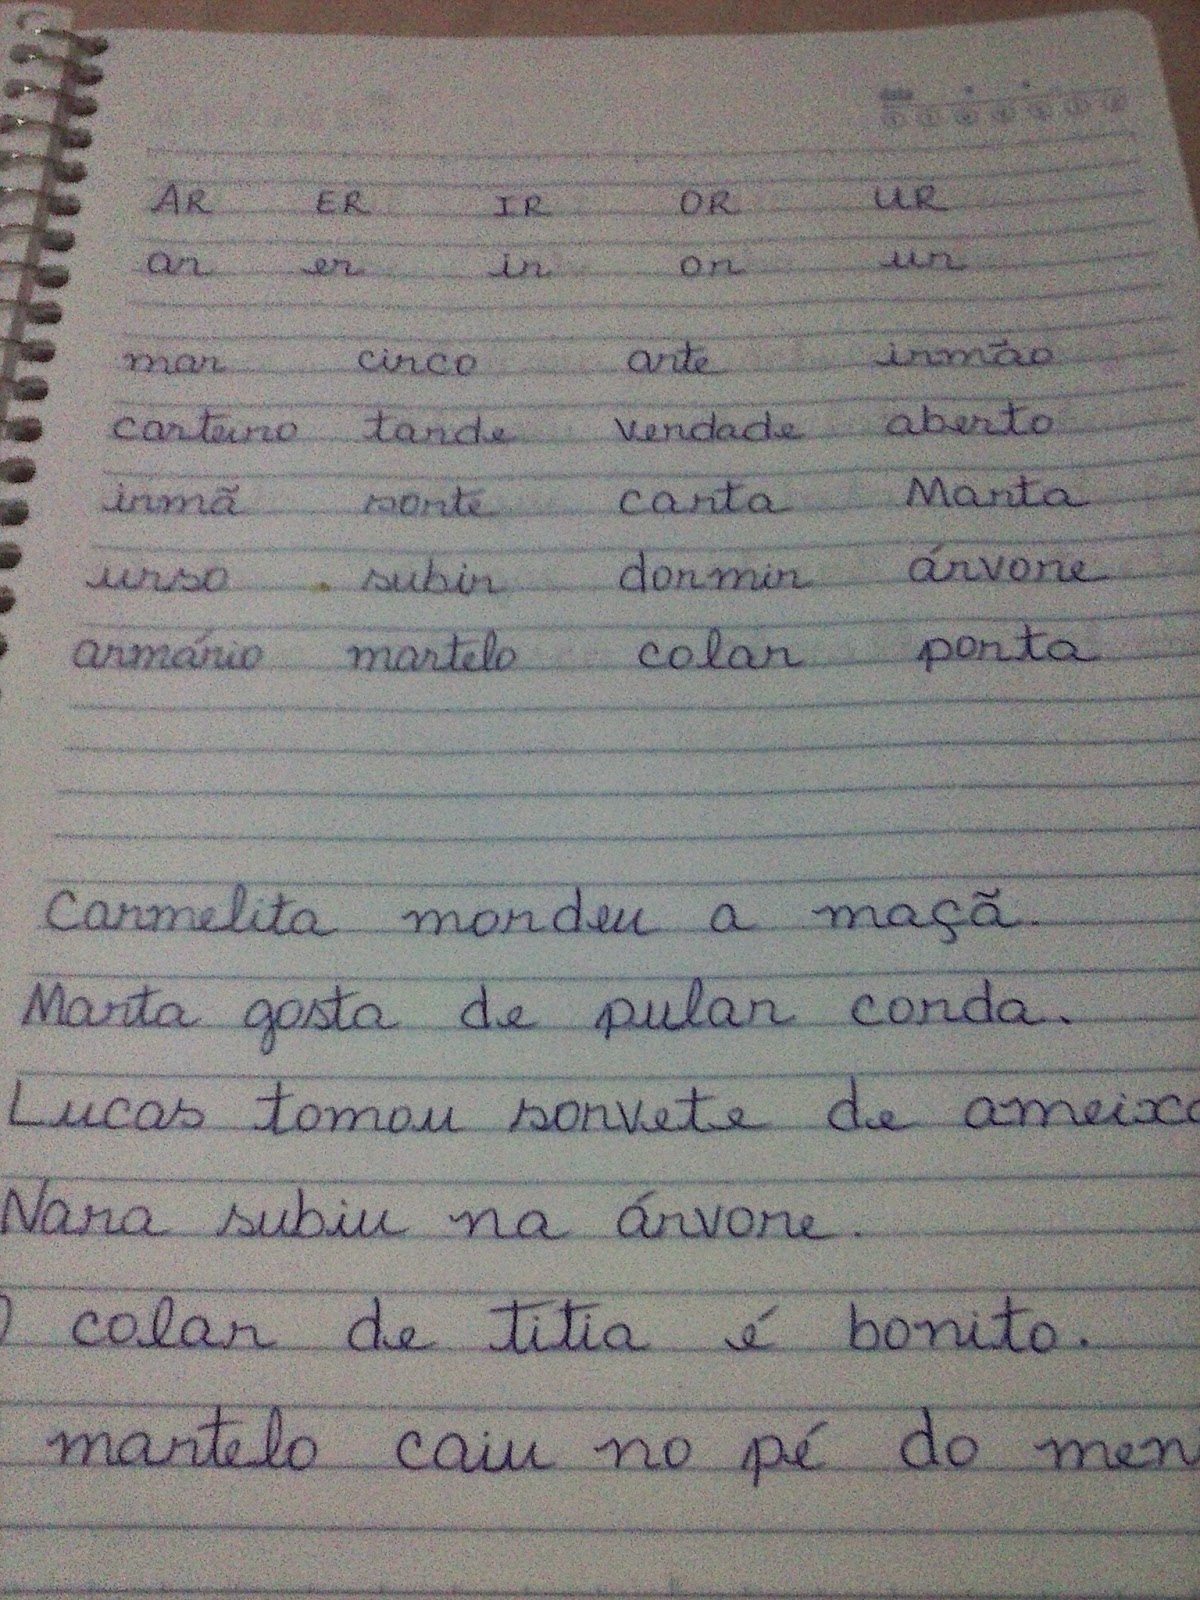 AR ER IR OR UR
ar er ir or ur
mar circo arte irmão
carteiro tarde verdade aberto
irmã sorte carta Marta
urso subir dormir árvore
armário martelo colar porta
Carmelita mordeu a maçã.
Marta gosta de pular corda.
Lucas tomou sorvete de ameixa
Nara subiu na árvore.
O colar de titia é bonito.
martelo caiu no pé do men